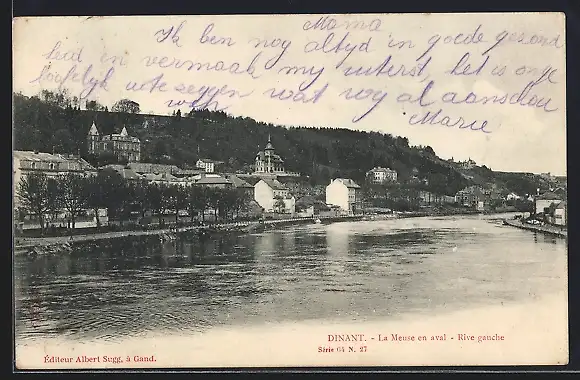 Mama
Ik ben nog altyd in goede gezond
heid en vermaak my uiterst, het is onge
looflyk wat wy al aanschou
Marie
DINANT. - La Meuse en aval - Rive gauche
Série 64 N. 27
Éditeur Albert Sugg, à Gand.